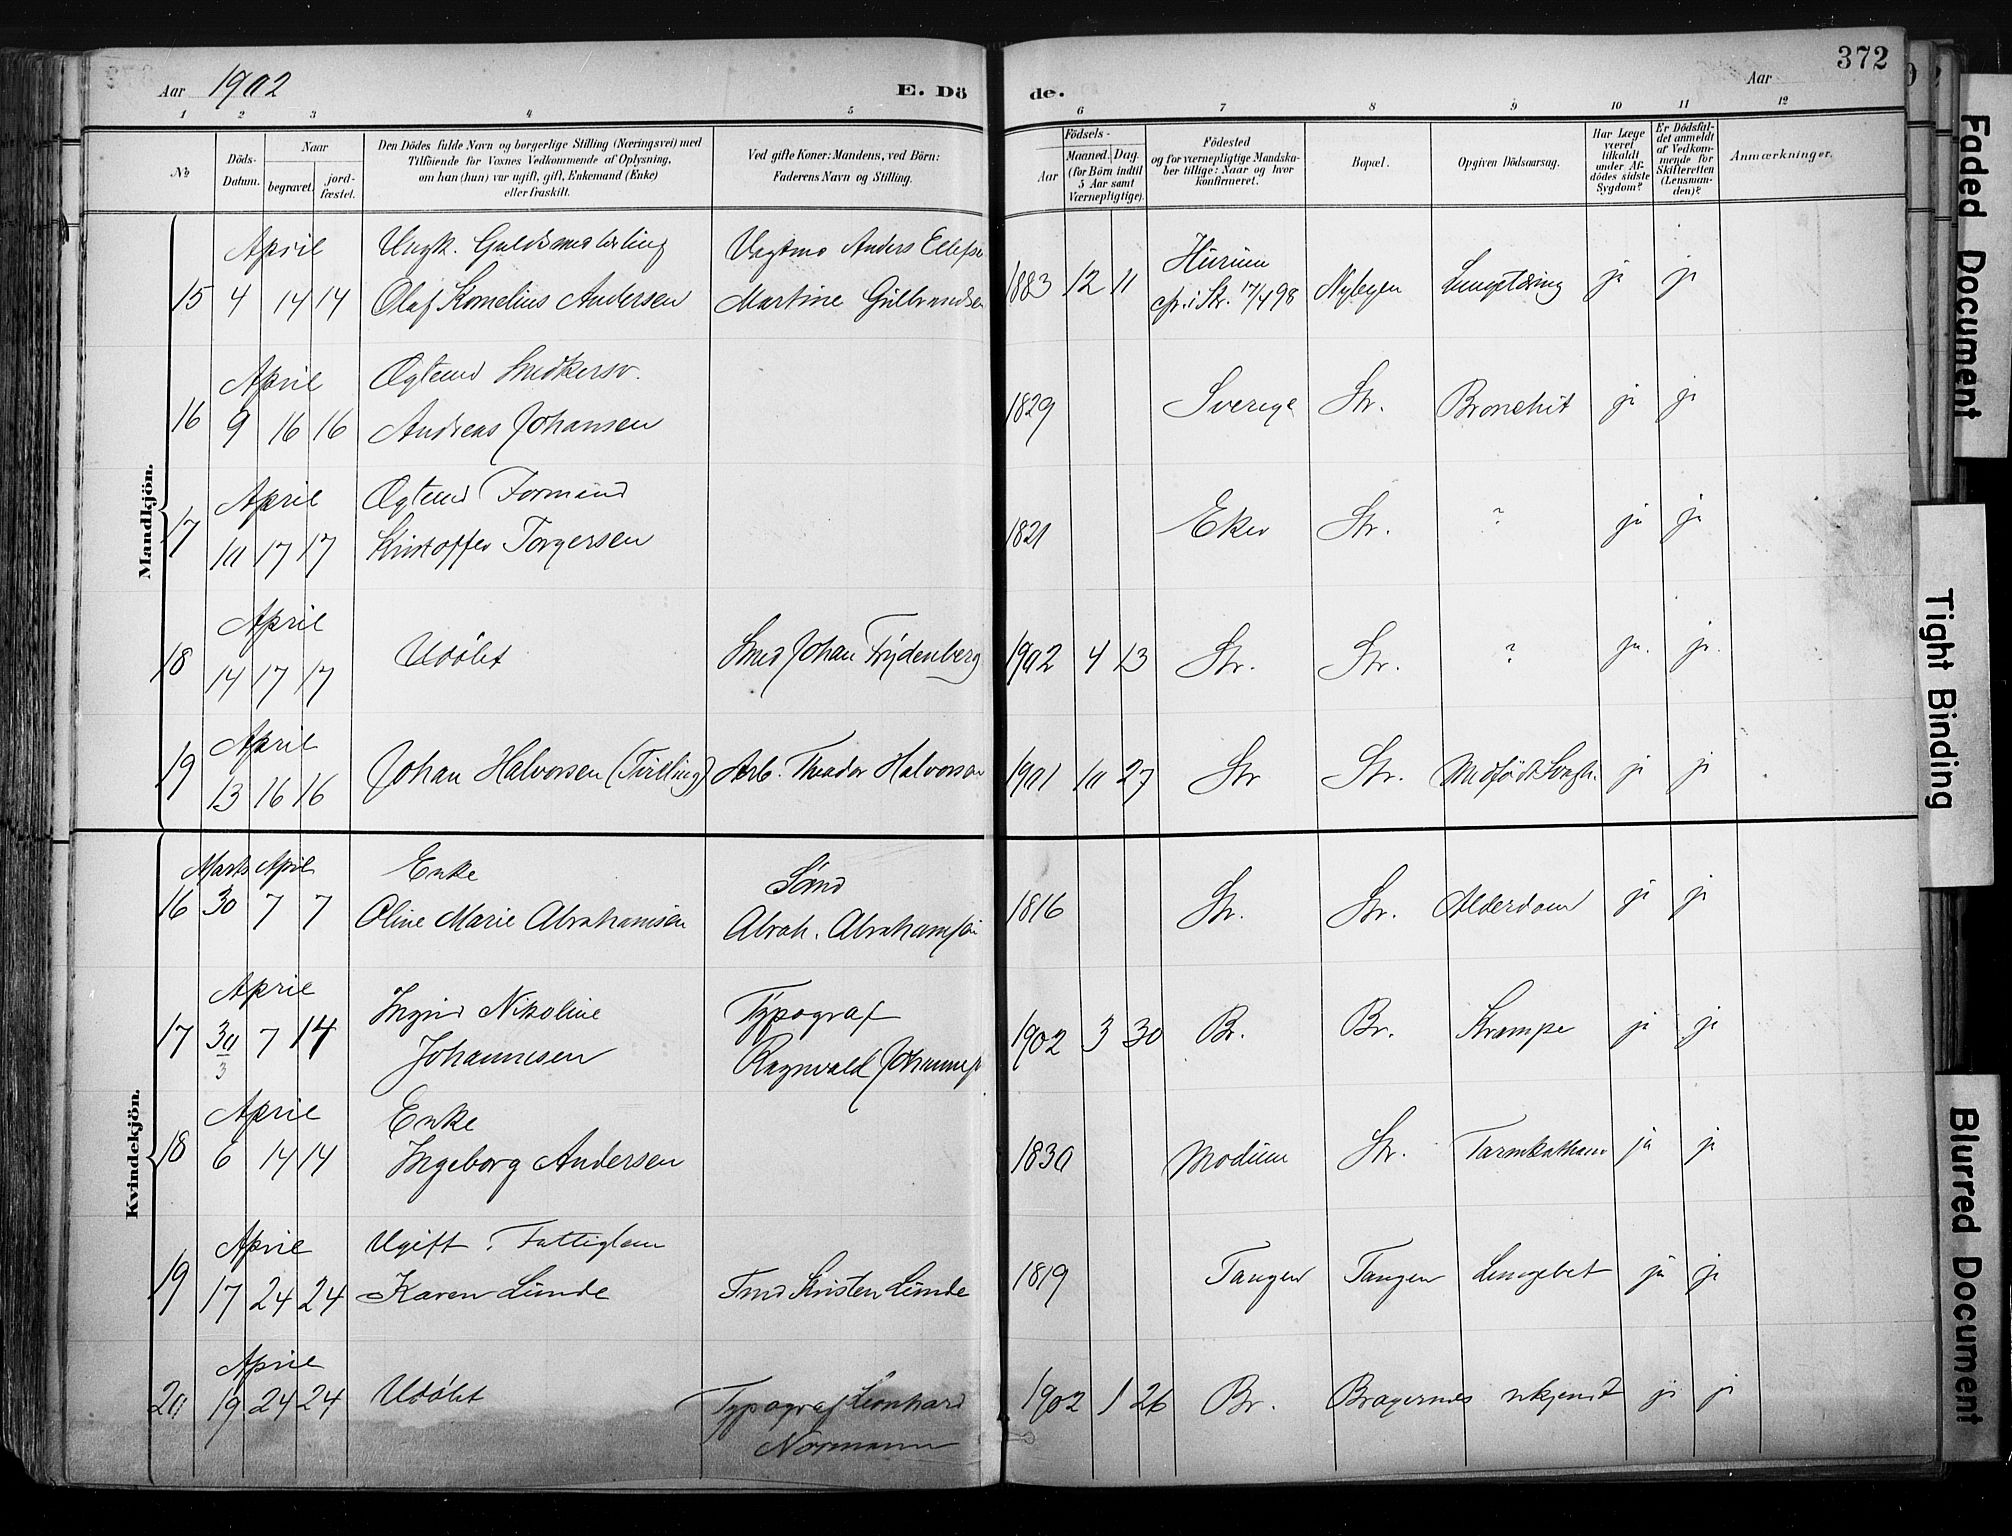 372
Aar 1902
E. Dö
de.
Aar
1 2 3 4 5
6 7 8 9 10 11 12
№
Döds-Datum.
Naar
begravet.
jord-fæstet.
Den Dödes fulde Navn og borgerlige Stilling (Næringsvei) med
Tilföiende for Voxnes Vedkommende af Oplysning,
om han (hun) var ugift, gift, Enkemand (Enke)
eller fraskilt.
Ved gifte Koner: Mandens, ved Börn:
Faderens Navn og Stilling.
Födsels-
Aar
Maaned. Dag.
(for Börn indtil
5 Aar samt
Værnepligtige).
Födested
og for værnepligtige Mandska-
ber tillige: Naar og hvor
konfirmeret.
Bopæl.
Opgiven Dödsaarsag.
Har Læge
været
tilkaldt
under Af-
dödes sidste
Sygdom?
Er Dödsfal-
det anmeldt
af Vedkom-
mende for
Skifteretten
(Lensman-
den)?
Anmærkninger.
Mandkjön.
April Ungk. Guldsmedlærling Vagtmd Anders Ellefsen Hurum
15 4 14 14 Olaf Kornelius Andersen Martine Gulbrandsen 1883 12 11 cfr. i Str. 17/4 98 Nybyen Lungetæring ja ja
April Ægtemd Snedkersv.
16 9 16 16 Andreas Johansen 1829 Sverige Str. Bronchit ja ja
April Ægtemd Formand
17 10 17 17 Kristoffer Torgersen 1821 Eker Str. ? ja ja
April
18 14 17 17 Udöbt Smed Johan Frydenberg 1902 4 13 Str. Str. ? ja. ja.
April
19 13 16 16 Johan Halvorsen (Tvilling) Arb. Theodor Halvorsen 1901 10 27 Str Str. Medfødt Svagh. ja ja
Kvindekjön.
Marts April Enke Sömd
16 30 7 7 Oline Marie Abrahamsen Abrah. Abrahamsen 1816 Str. Str. Alderdom ja ja
April Ingrid Nikoline Typograf
17 30/3 7 14 Johannesen Ragnvald Johannes 1902 3 30 Br. Br. Krampe ja ja
April Enke
18 6 14 14 Ingeborg Andersen 1830 Modum Str. Tarmkatharr ja ja
April Ugift. Fattiglem
19 17 24 24 Karen Lunde Tmd Kristen Lunde 1819 Tangen Tangen Lungebet ja ja
April
20 19 24 24 Udöbt Typograf Leonhard 1902 1 26 Br. Bragernes ukjendt ja ja
Normann
Faded Document
Tight Binding
Blurred Document